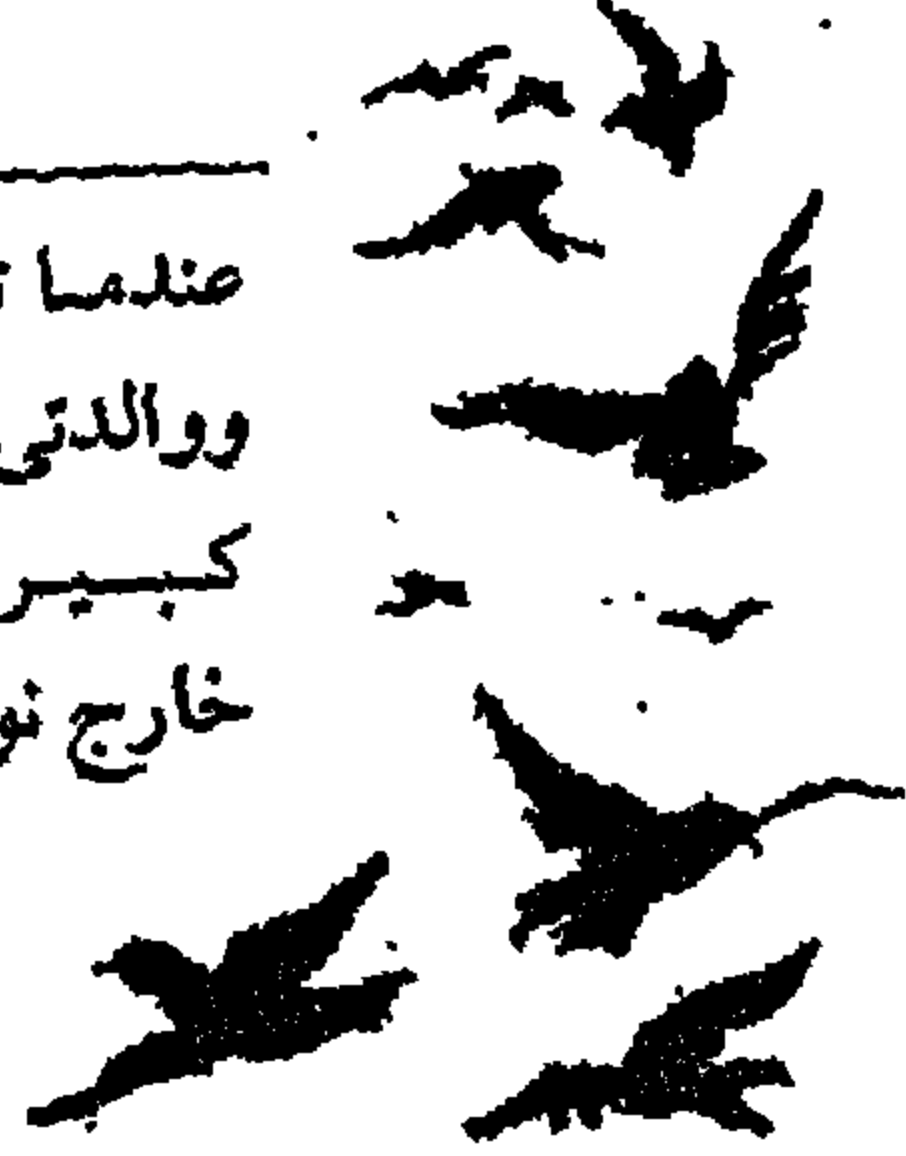 عندما
ووالدتي
كبير
خارج